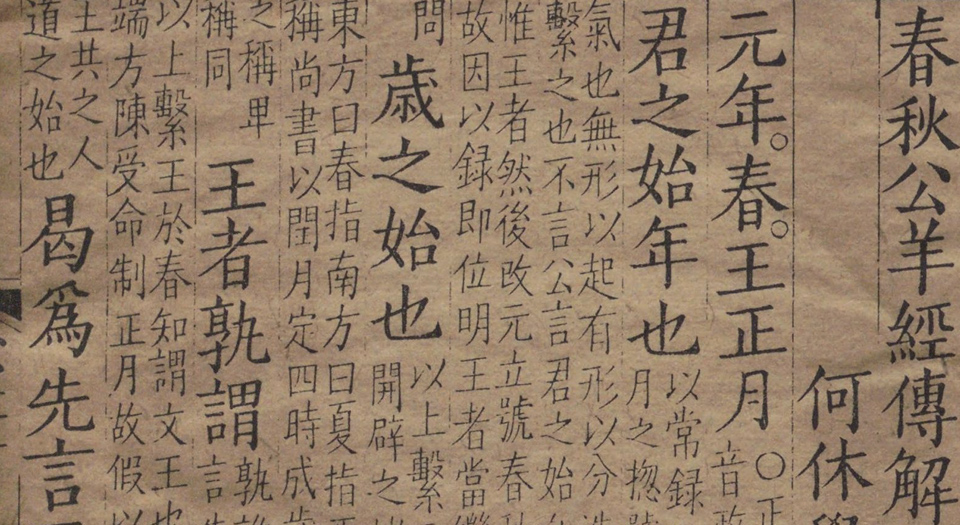 春秋公羊經傳解
何休
元年。春。王正月
○正
音政
君之始年也
以常録
月之揔號
氣也無形以起有形以分造
繫之也不言公言君之始年
惟王者然後改元立號春秋
故因以録即位明王者當繼
問
歲之始也
以上繫
開闢之
東方曰春指南方曰夏指西
稱尚書以閏月定四時成歲
之稱卑
稱同
王者孰謂
孰誰
言先
以上繫王於春知謂文王也
端方陳受命制正月故假以
王共之人
道之始也
曷爲先言